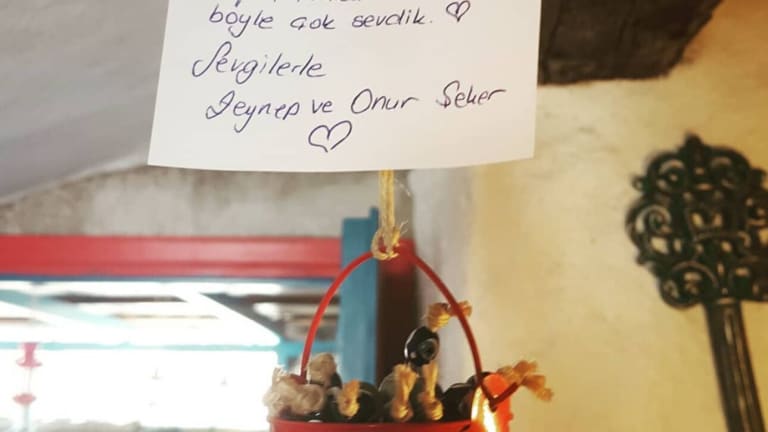 böyle çok sevdik.
Sevgilerle
Zeynep ve Onur Şeker